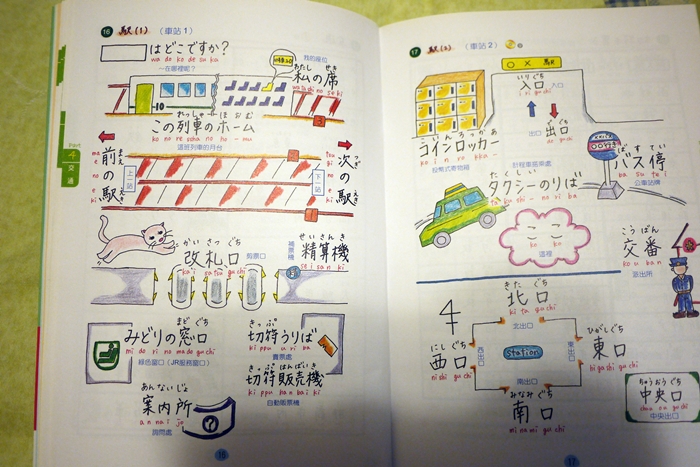 16 駅(1) (車站 1)
はどこですか?
wa do ko de su ka
~在哪裡呢?
我的座位
わたし せき
私の席
wa ta shi no se ki
れっしゃ ほおむ
この列車のホーム
ko no re ssha no ho- mu
這班列車的月台
まえ えき
前の駅
ma e no e ki
上一站
下一站
つぎ えき
次の駅
tsu gi no e ki
かい さつ ぐち
改札口
ka i sa tsu gu chi
剪票口
補票機
せいさんき
精算機
se i sa n ki
まど ぐち
みどりの窓口
mi do ri no ma do gu chi
綠色窗口(JR服務窗口)
きっぷ
切符うりば
ki ppu u ri ba
賣票處
きっぷ はんばいき
切符販売機
ki ppu han bai ki
自動販票機
あんないじょ
案内所
a n na i jo
詢問處
?
Part
4
交通
16
17 駅(2) (車站 2)
○ × 駅
いりぐち
入口
入口
i ri gu chi
でぐち
出口
出口
de gu chi
こいんろっかあ
コインロッカー
ko i n ro kka-
投幣式寄物櫃
ばす てい
バス停
ba su te i
公車站牌
計程車搭乘處
たくしい
タクシーのりば
ta ku shi- no ri ba
ここ
ko ko
這裡
こうばん
交番
ko u ba n
派出所
きた ぐち
北口
ki ta gu chi
北出口
にし ぐち
西口
ni shi gu chi
西出口
Station
東出口
ひがしぐち
東口
hi ga shi gu chi
南出口
みなみ ぐち
南口
mi na mi gu chi
ちゅうおうぐち
中央口
chu ou gu chi
中央出口
17